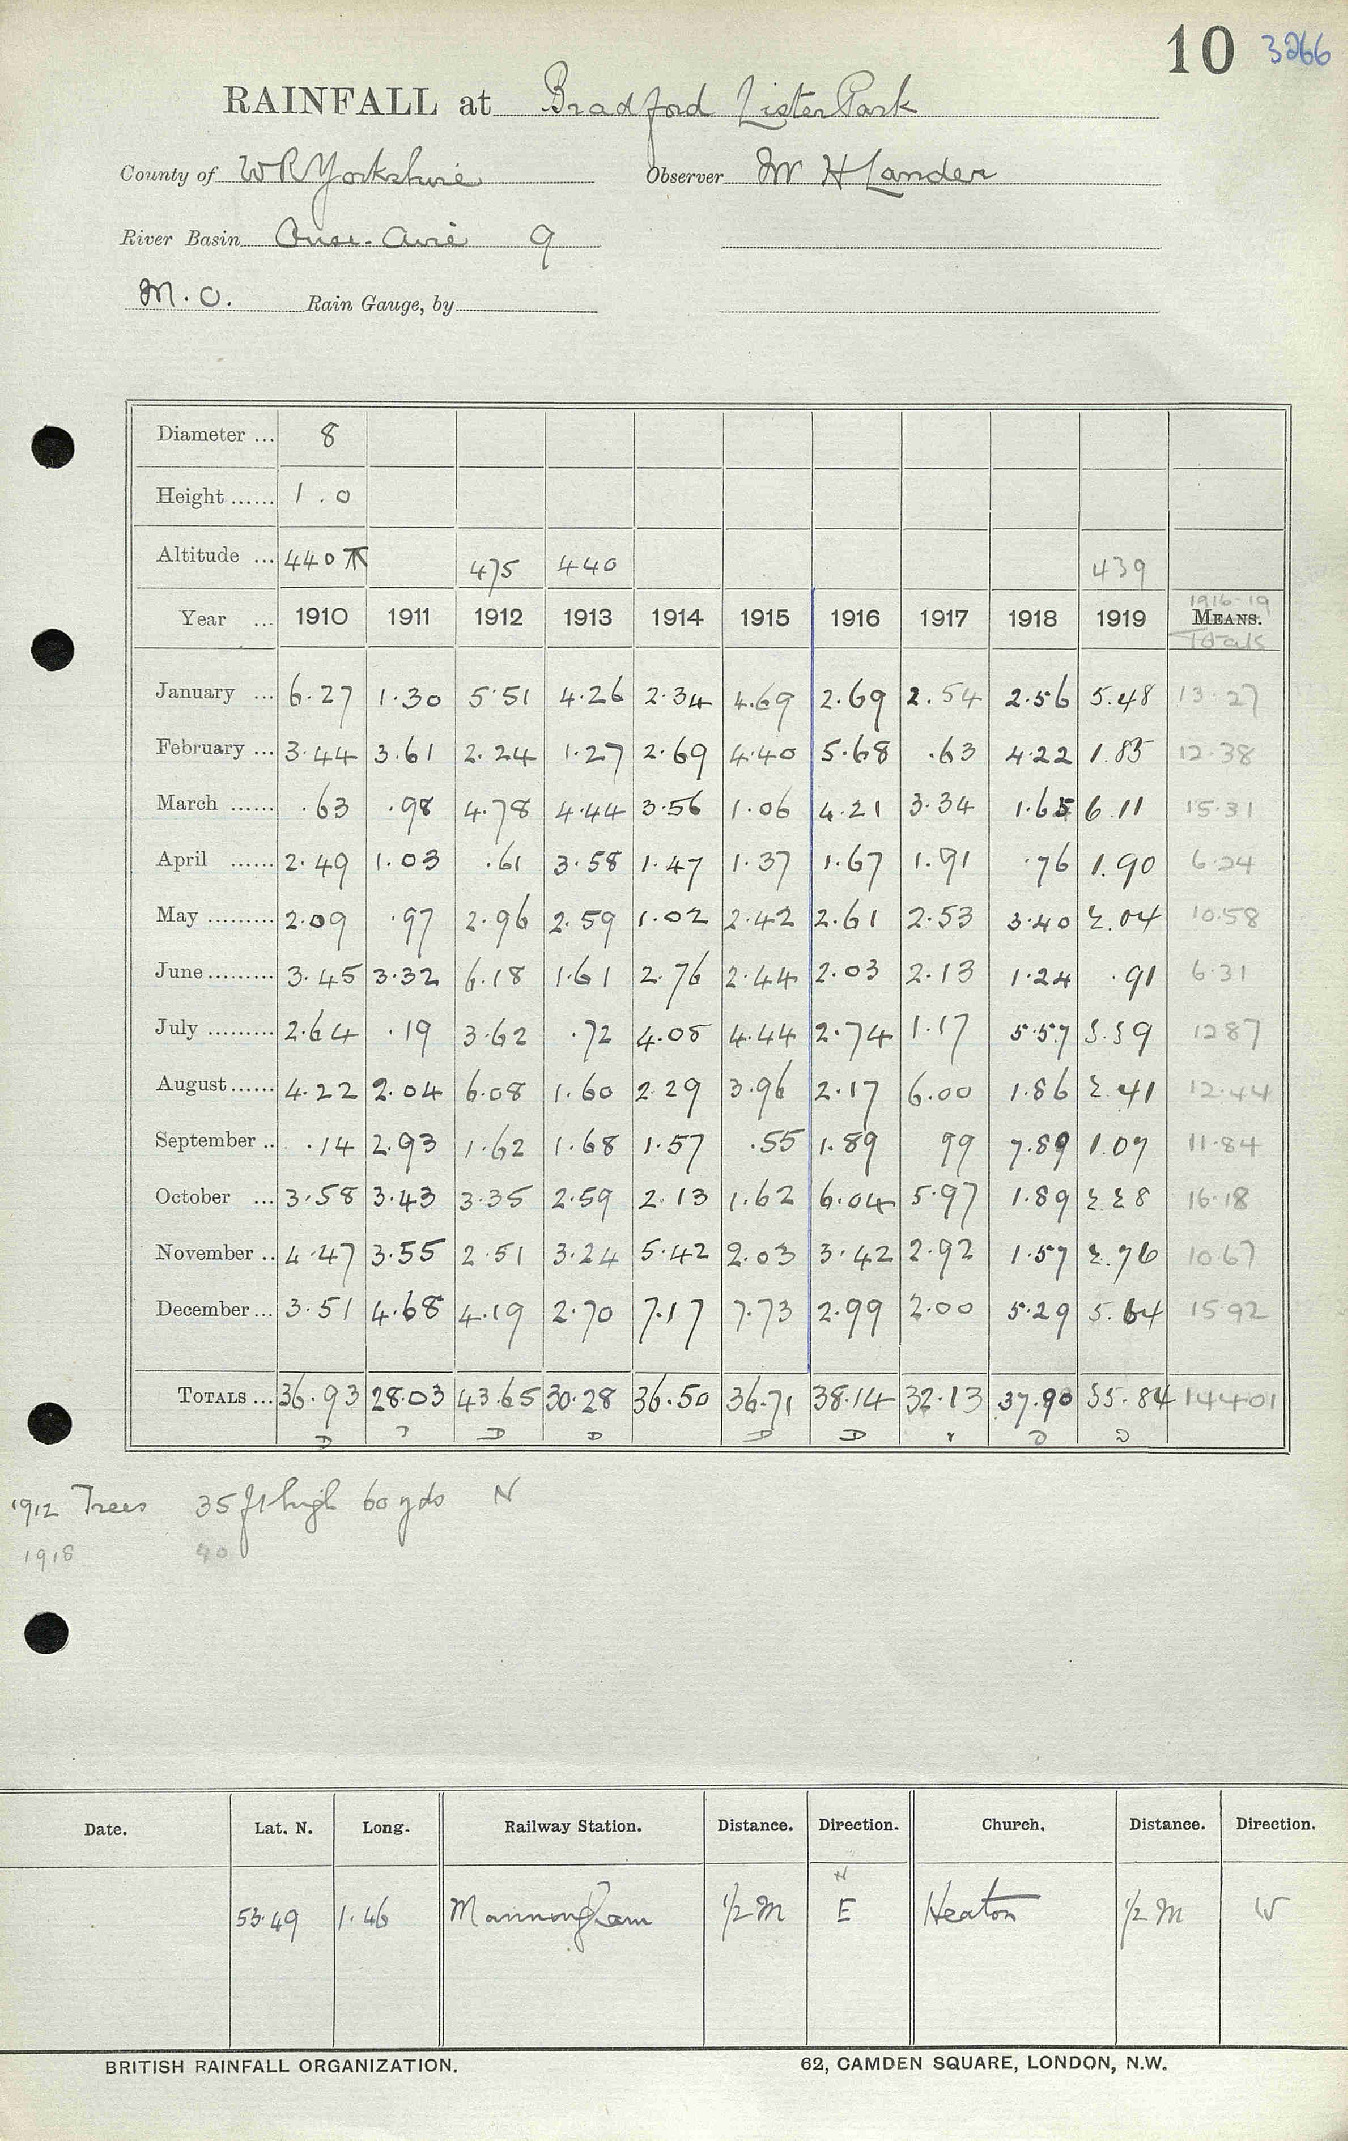 10 3266
RAINFALL at Bradford Lister Park
County of W R Yorkshire Observer Mr H Lander
River Basin Ouse-Aire 9
M.O. Rain Gauge, by
Diameter ... 8
Height ...... 1.0
Altitude ... 440 T 475 440 439
1916-19
Year ... 1910 1911 1912 1913 1914 1915 1916 1917 1918 1919 MEANS.
Totals
January ... 6.27 1.30 5.51 4.26 2.34 4.69 2.69 2.54 2.56 5.48 13.27
February ... 3.44 3.61 2.24 1.27 2.69 4.40 5.68 .63 4.22 1.85 12.38
March ...... .63 .98 4.78 4.44 3.56 1.06 4.21 3.34 1.65 6.11 15.31
April ...... 2.49 1.03 .61 3.58 1.47 1.37 1.67 1.91 .76 1.90 6.24
May ......... 2.09 .97 2.96 2.59 1.02 2.42 2.61 2.53 3.40 2.04 10.58
June ......... 3.45 3.32 6.18 1.61 2.76 2.44 2.03 2.13 1.24 .91 6.31
July ......... 2.64 .19 3.62 .72 4.08 4.44 2.74 1.17 5.57 3.39 12 87
August ...... 4.22 2.04 6.08 1.60 2.29 3.96 2.17 6.00 1.86 2.41 12.44
September .. .14 2.93 1.62 1.68 1.57 .55 1.89 99 7.89 1.07 11.84
October ... 3.58 3.43 3.35 2.59 2.13 1.62 6.04 5.97 1.89 2.28 16.18
November .. 4.47 3.55 2.51 3.24 5.42 2.03 3.42 2.92 1.57 2.76 10.67
December ... 3.51 4.68 4.19 2.70 7.17 7.73 2.99 2.00 5.29 5.64 15.92
TOTALS ... 36.93 28.03 43.65 30.28 36.50 36.71 38.14 32.13 37.90 35.84 144.01
1912 Trees 35 ft high 60 yds N
1918 40
Date. Lat. N. Long. Railway Station. Distance. Direction. Church. Distance. Direction.
53.49 1.46 Manningham 1/2 M N E Heaton 1/2 M W
BRITISH RAINFALL ORGANIZATION. 62, CAMDEN SQUARE, LONDON, N.W.